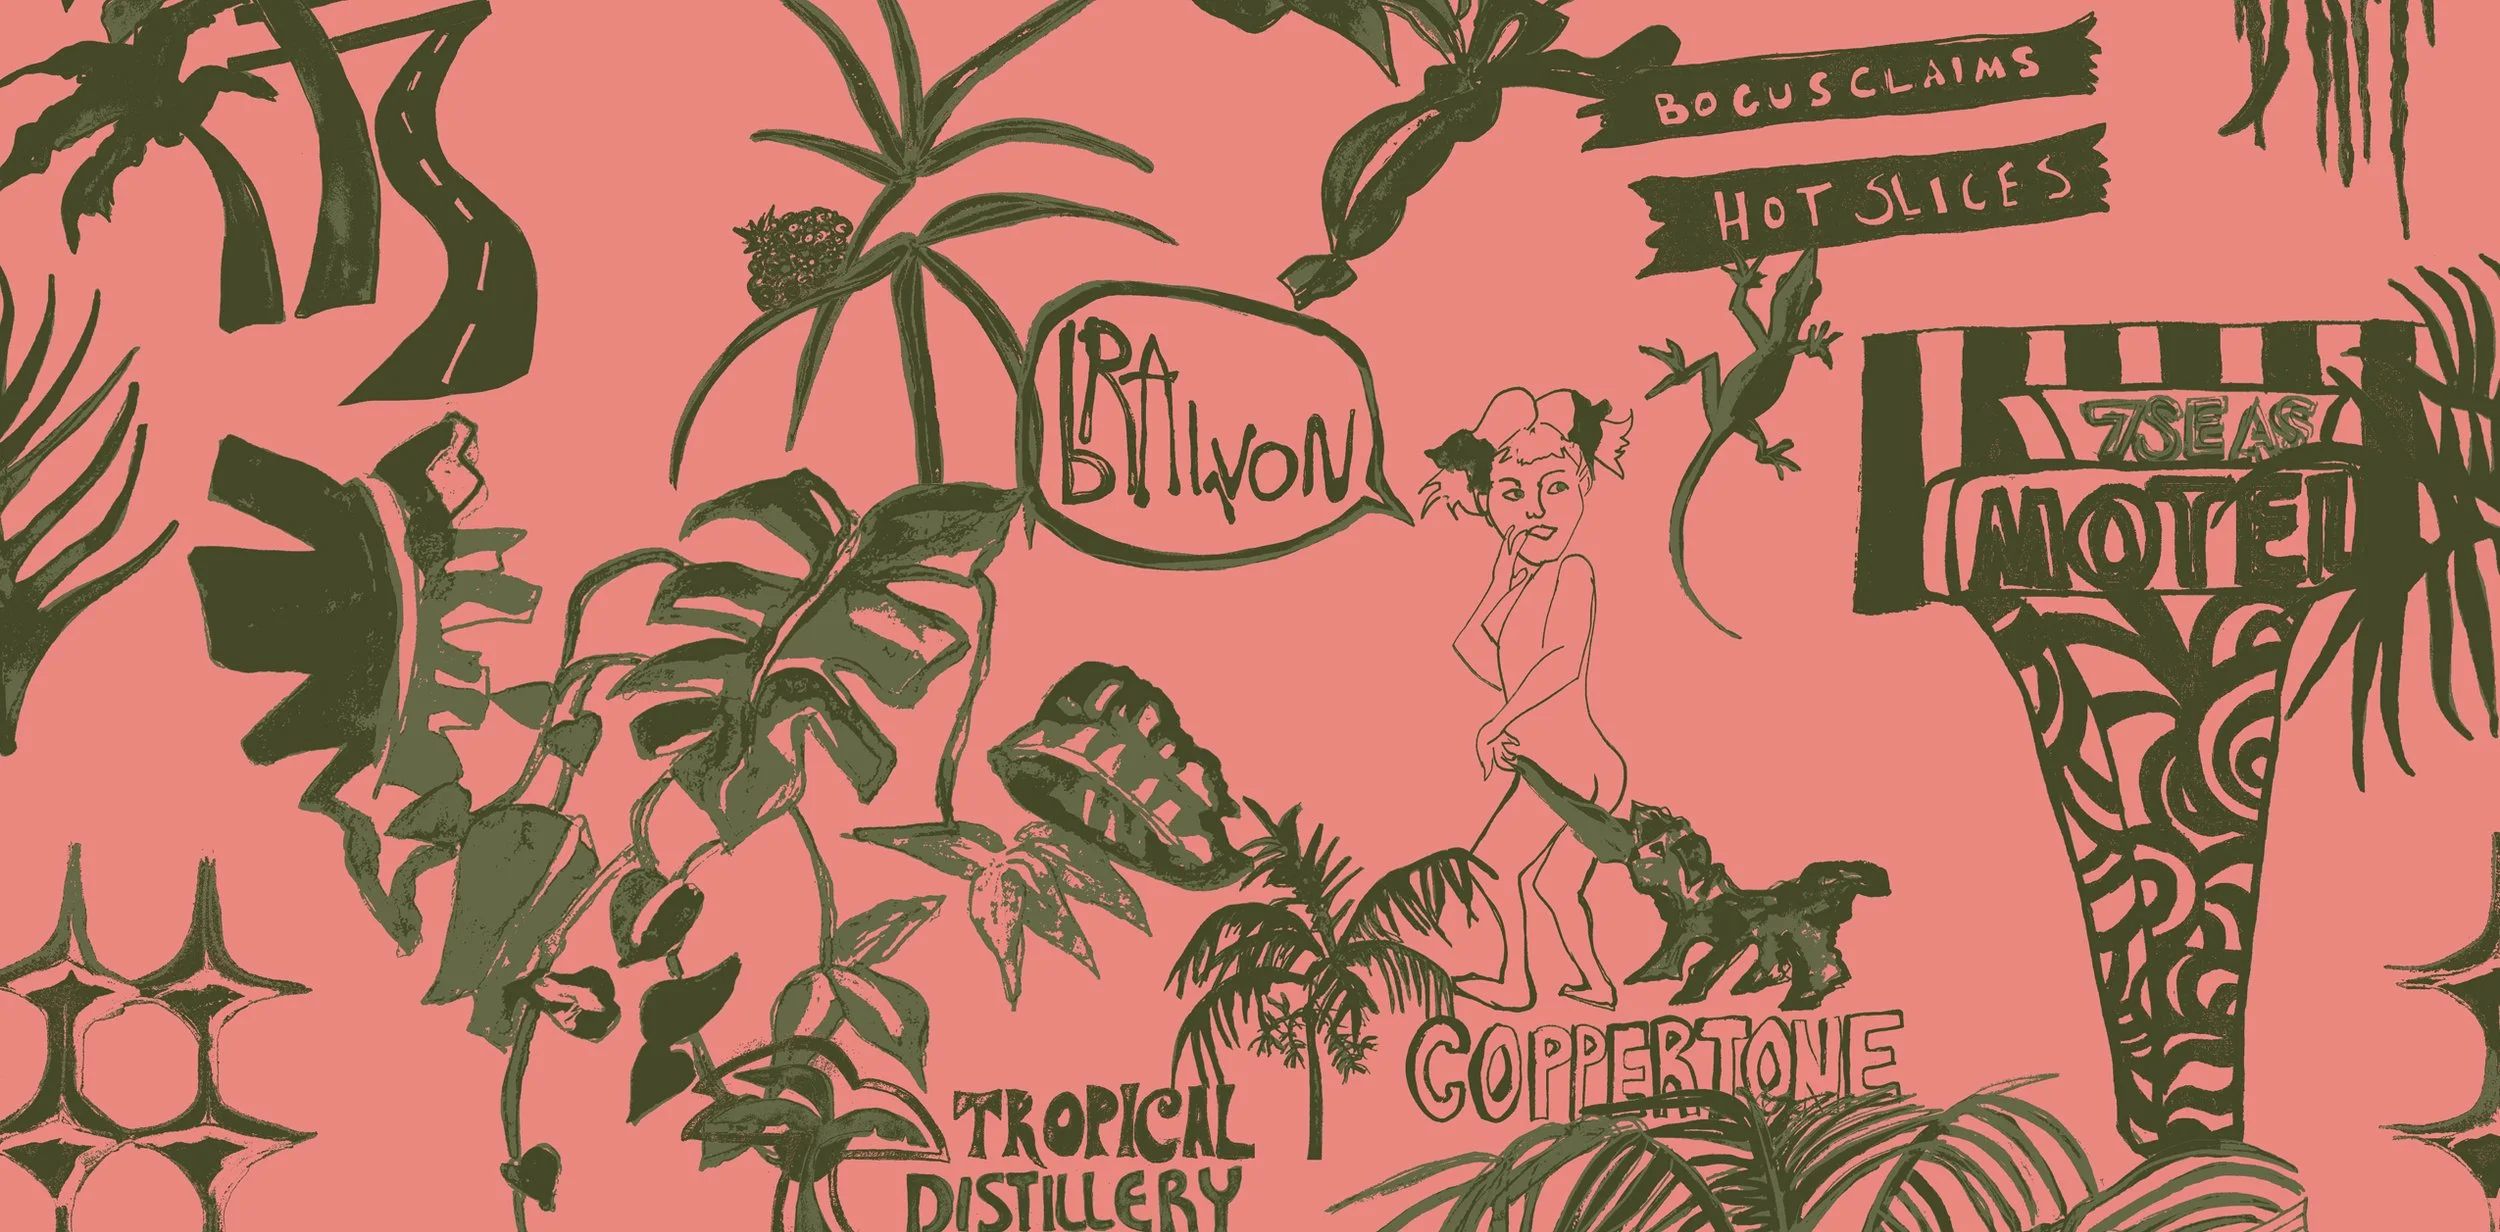 BOGUS CLAIMS
HOT SLICES
7 SEAS
MOTEL
COPPERTONE
TROPICAL
DISTILLERY